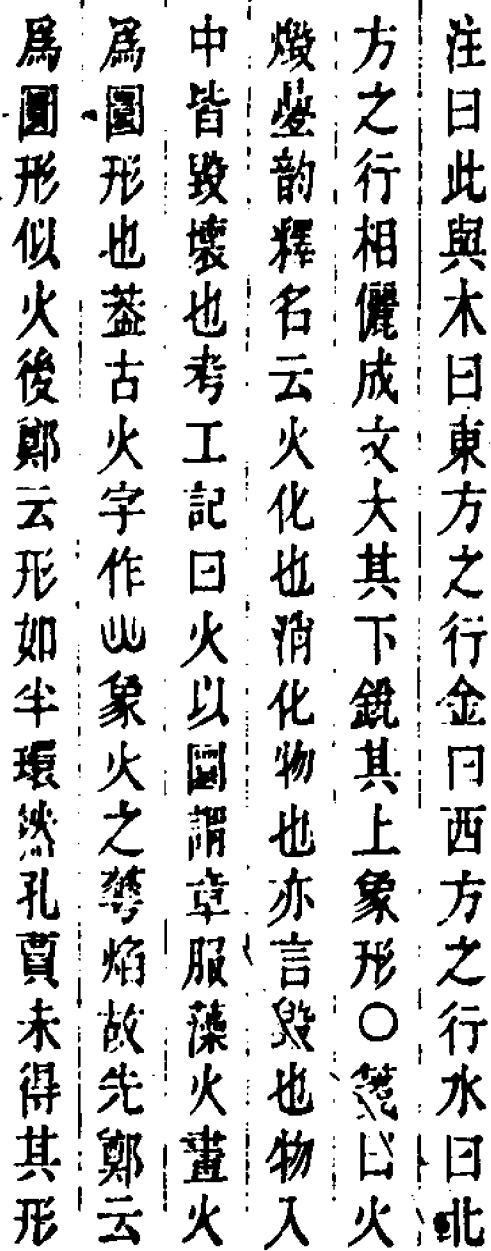 注曰此與木曰東方之行金曰西方之行水曰北
方之行相儷成文大其下銳其上象形〇箋曰火
燬疊韵釋名云火化也消化物也亦言毀也物入
中皆毀壞也考工記曰火以圜謂章服藻火畫火
爲圜形也葢古火字作山象火之焰故先鄭云
爲圓形似火後鄭云形如半環然孔賈未得其形